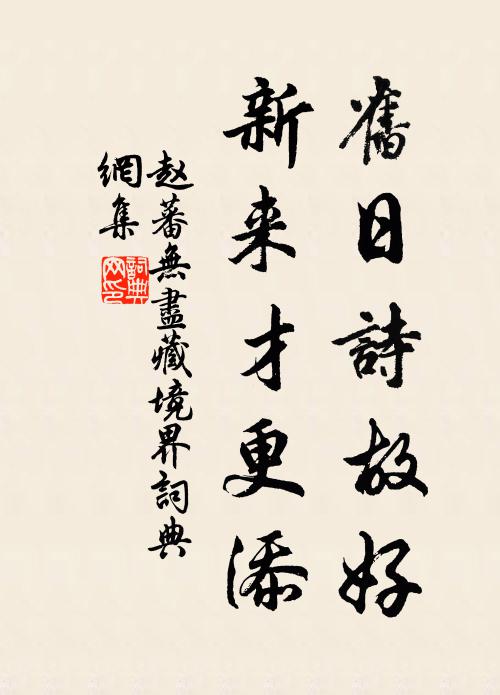 舊日詩故好
新来才更添
赵蕃無盡藏境界詞典
網集
詞典
网印